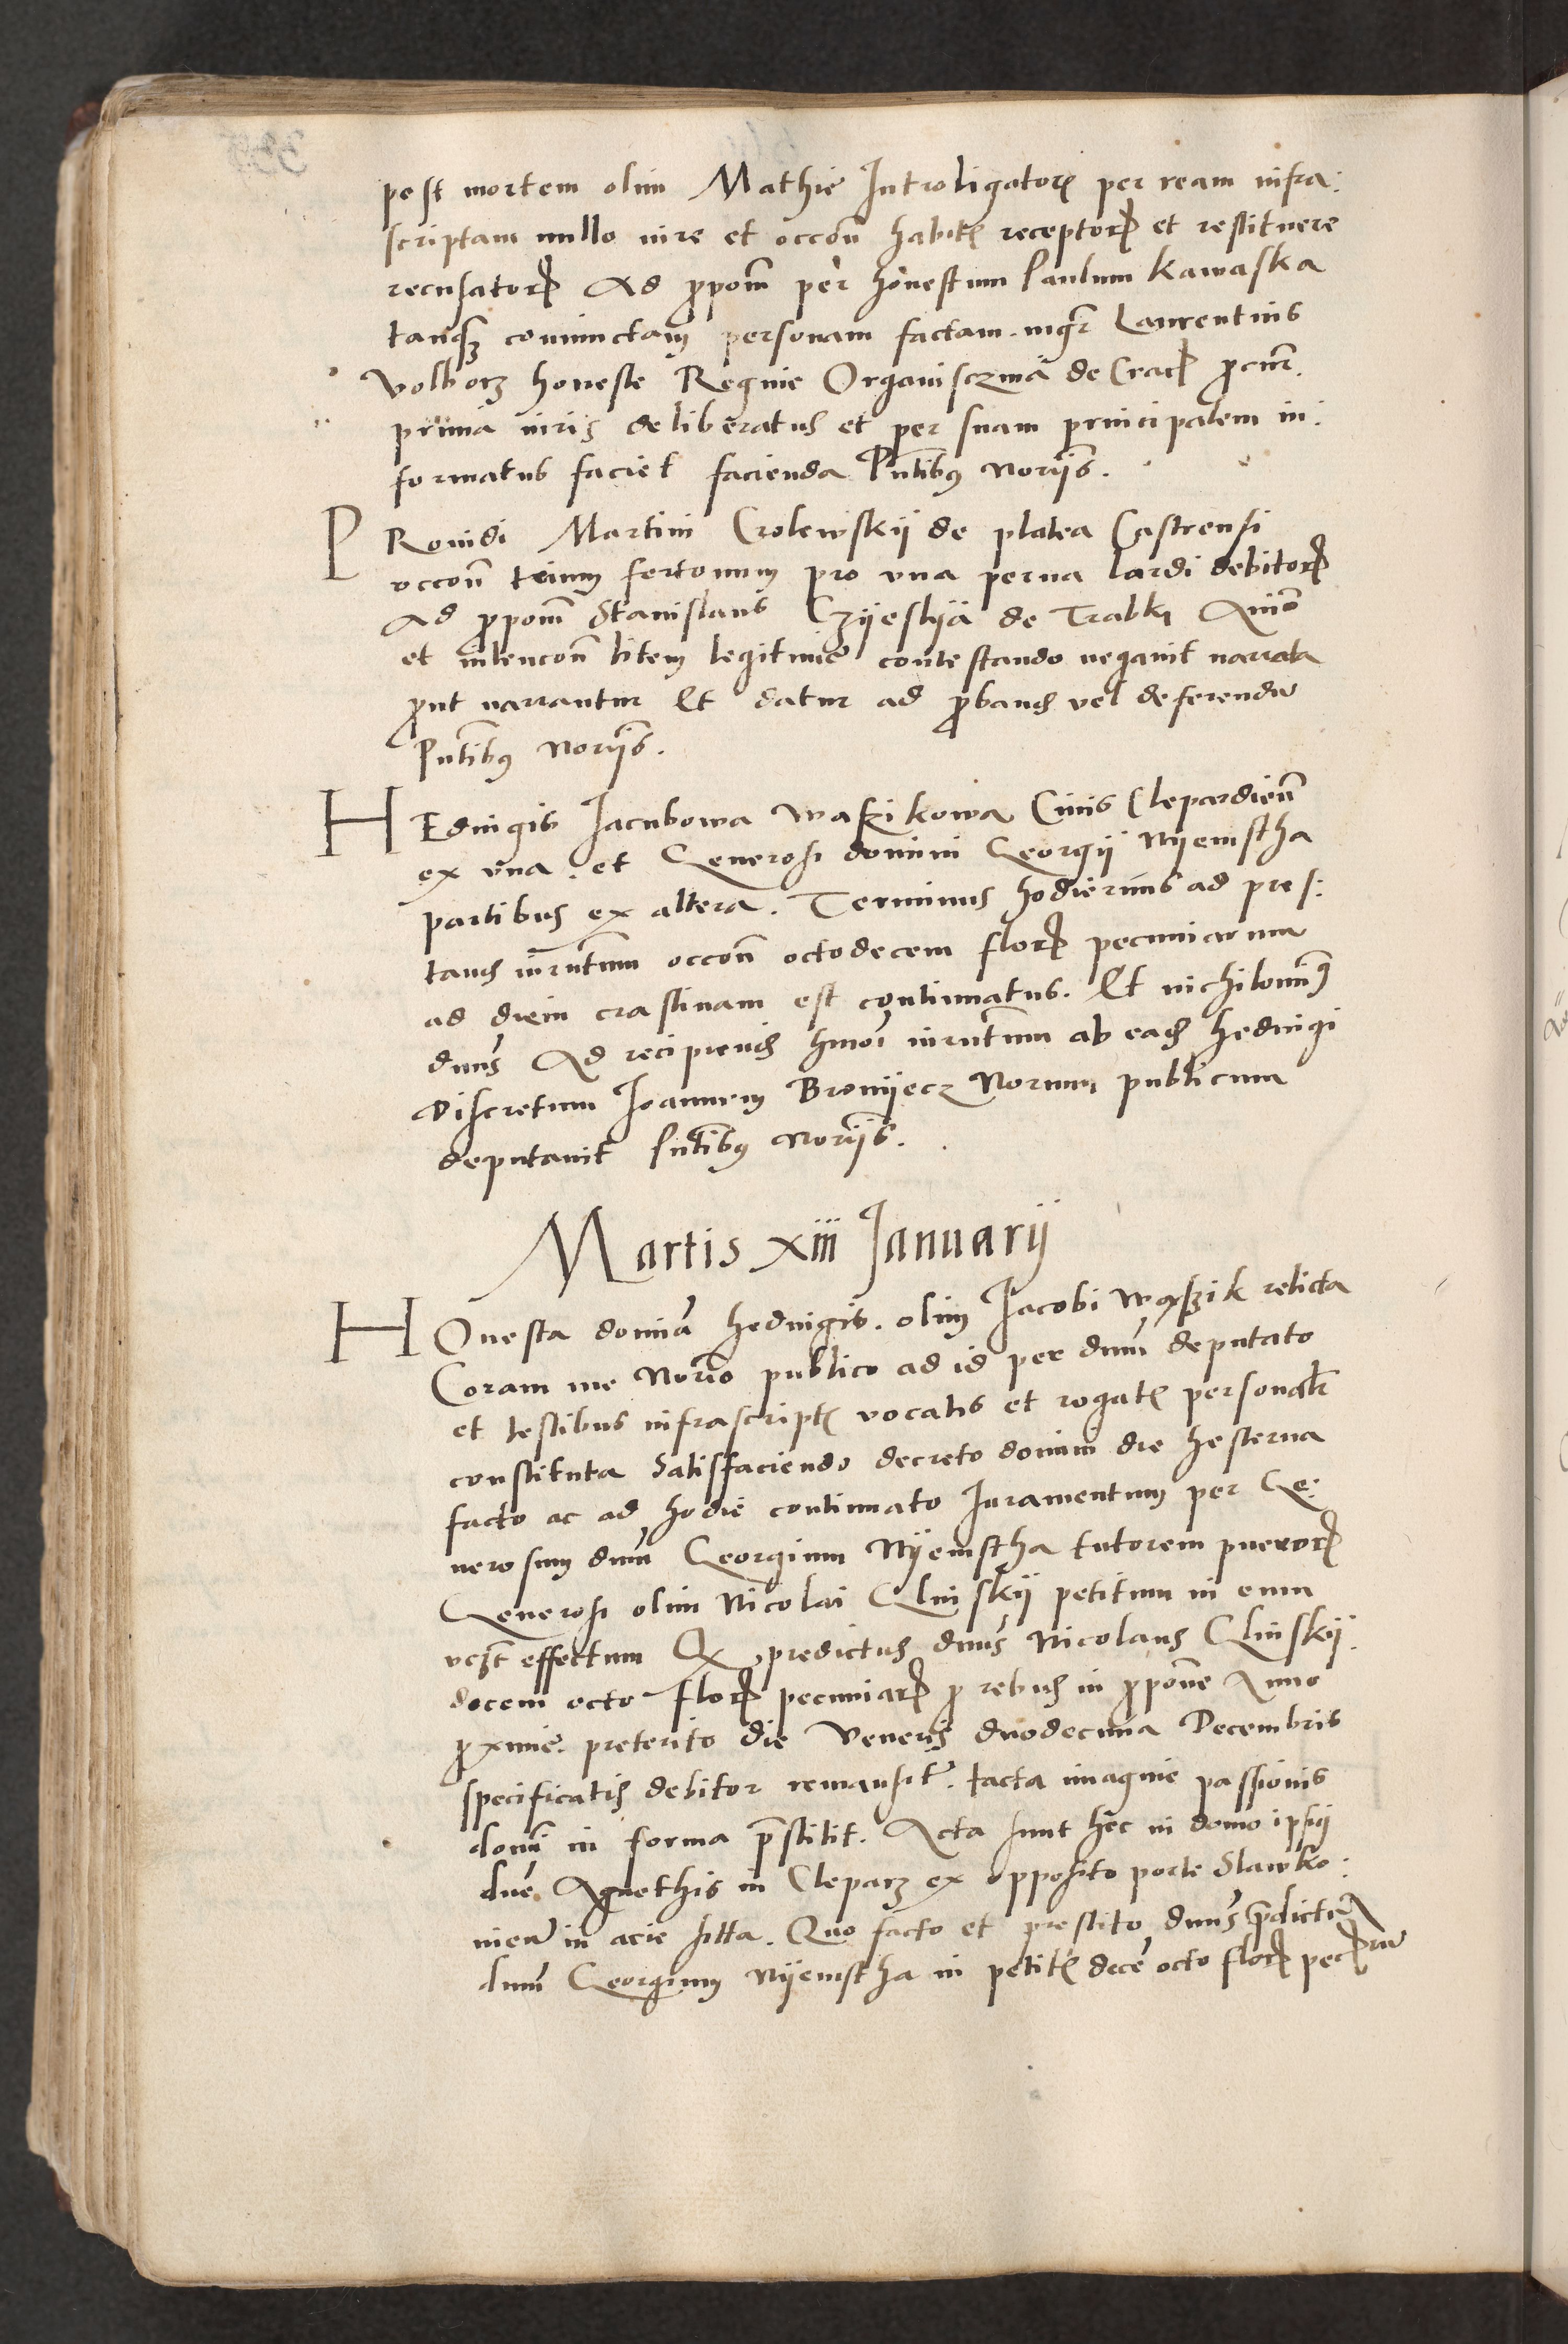 post mortem olim Mathie Introligator[is] per ream infra:
scriptam nullo iure et occōn habit[is] receptor[um] et restituere
recusator[um] Ad ꝓpoīm per honestum Paulum Kawaska
tanq[uam] coniunctam personam factam. mgr̄ Laurentius
Volborz honeste Regine Organisczina de Crac[ovia] ꝓcur̄.
prima iuris deliberatus et per suam principalem in:
formatus faciet facienda Pn̄tibus Norijs.
PRouidi Martini Crolewskij de platea Castrensi
occōn trium fertonum pro una perna lardi debitor[um]
Ad ꝓpoīm Stanislaus Czijeslya de Trabki Animo
et intencōn litem legitime contestando negauit narrata
ꝓut narrantur Et datur ad ꝓband vel deferendū
Pn̄tibus Norijs.
HEduigis Iacubowa Waszikowa Ciuis Clepardien̄
ex una. et Generosi domini Georgij Nyemstha
partibus ex altera. Terminus hodiernus ad pres:
tand iūrntum occōn octodecem flor[enorum] pecuniarum
ad diem crastinam est continuatus. Et nichilomin[us]
dn̄us Ad recipiend hmōi iurntum ab ead Heduigi
Discretum Ioannem Bronijecz Norum publicum
deputauit Pn̄tibus Norijs.
Martis xiii Ianuarij
HOnesta domina Heduigis. olim Iacobi Waszik relicta
Coram me Norio publico ad id per dnum deputato
et testibus infrascript[is] vocatis et rogat[is] personal[ite]r
constituta Satisfaciendo decreto domini die hesterna
facto ac ad hodie continuato Iuramentum per Ge:
nerosum dnum Georgium Nyemstha tutorem pueror[um]
Generosi olim Nicolai Glinskij petitum in eum
vcz̄t effectum Q[uia] predictus dnus Nicolaus Glinskij
decem octo flor[enorum] pecuniar[um] ꝓ rebus in ꝓpoōne Anno
ꝓxime preterito die Veneris duodecima Decembris
specificatis debitor remansit. tacta imagine passionis
domi in forma prestitit. Acta sunt hec in domo ipsi[us]
dne Agnethis in Cleparz ex opposito porte Slawko:
uien̄ in acie sitta. Quo facto et prestito dnus predictū
dnum Georgium Nyemstha in petit[is] decē octo flor[enis] pec[uniar]um